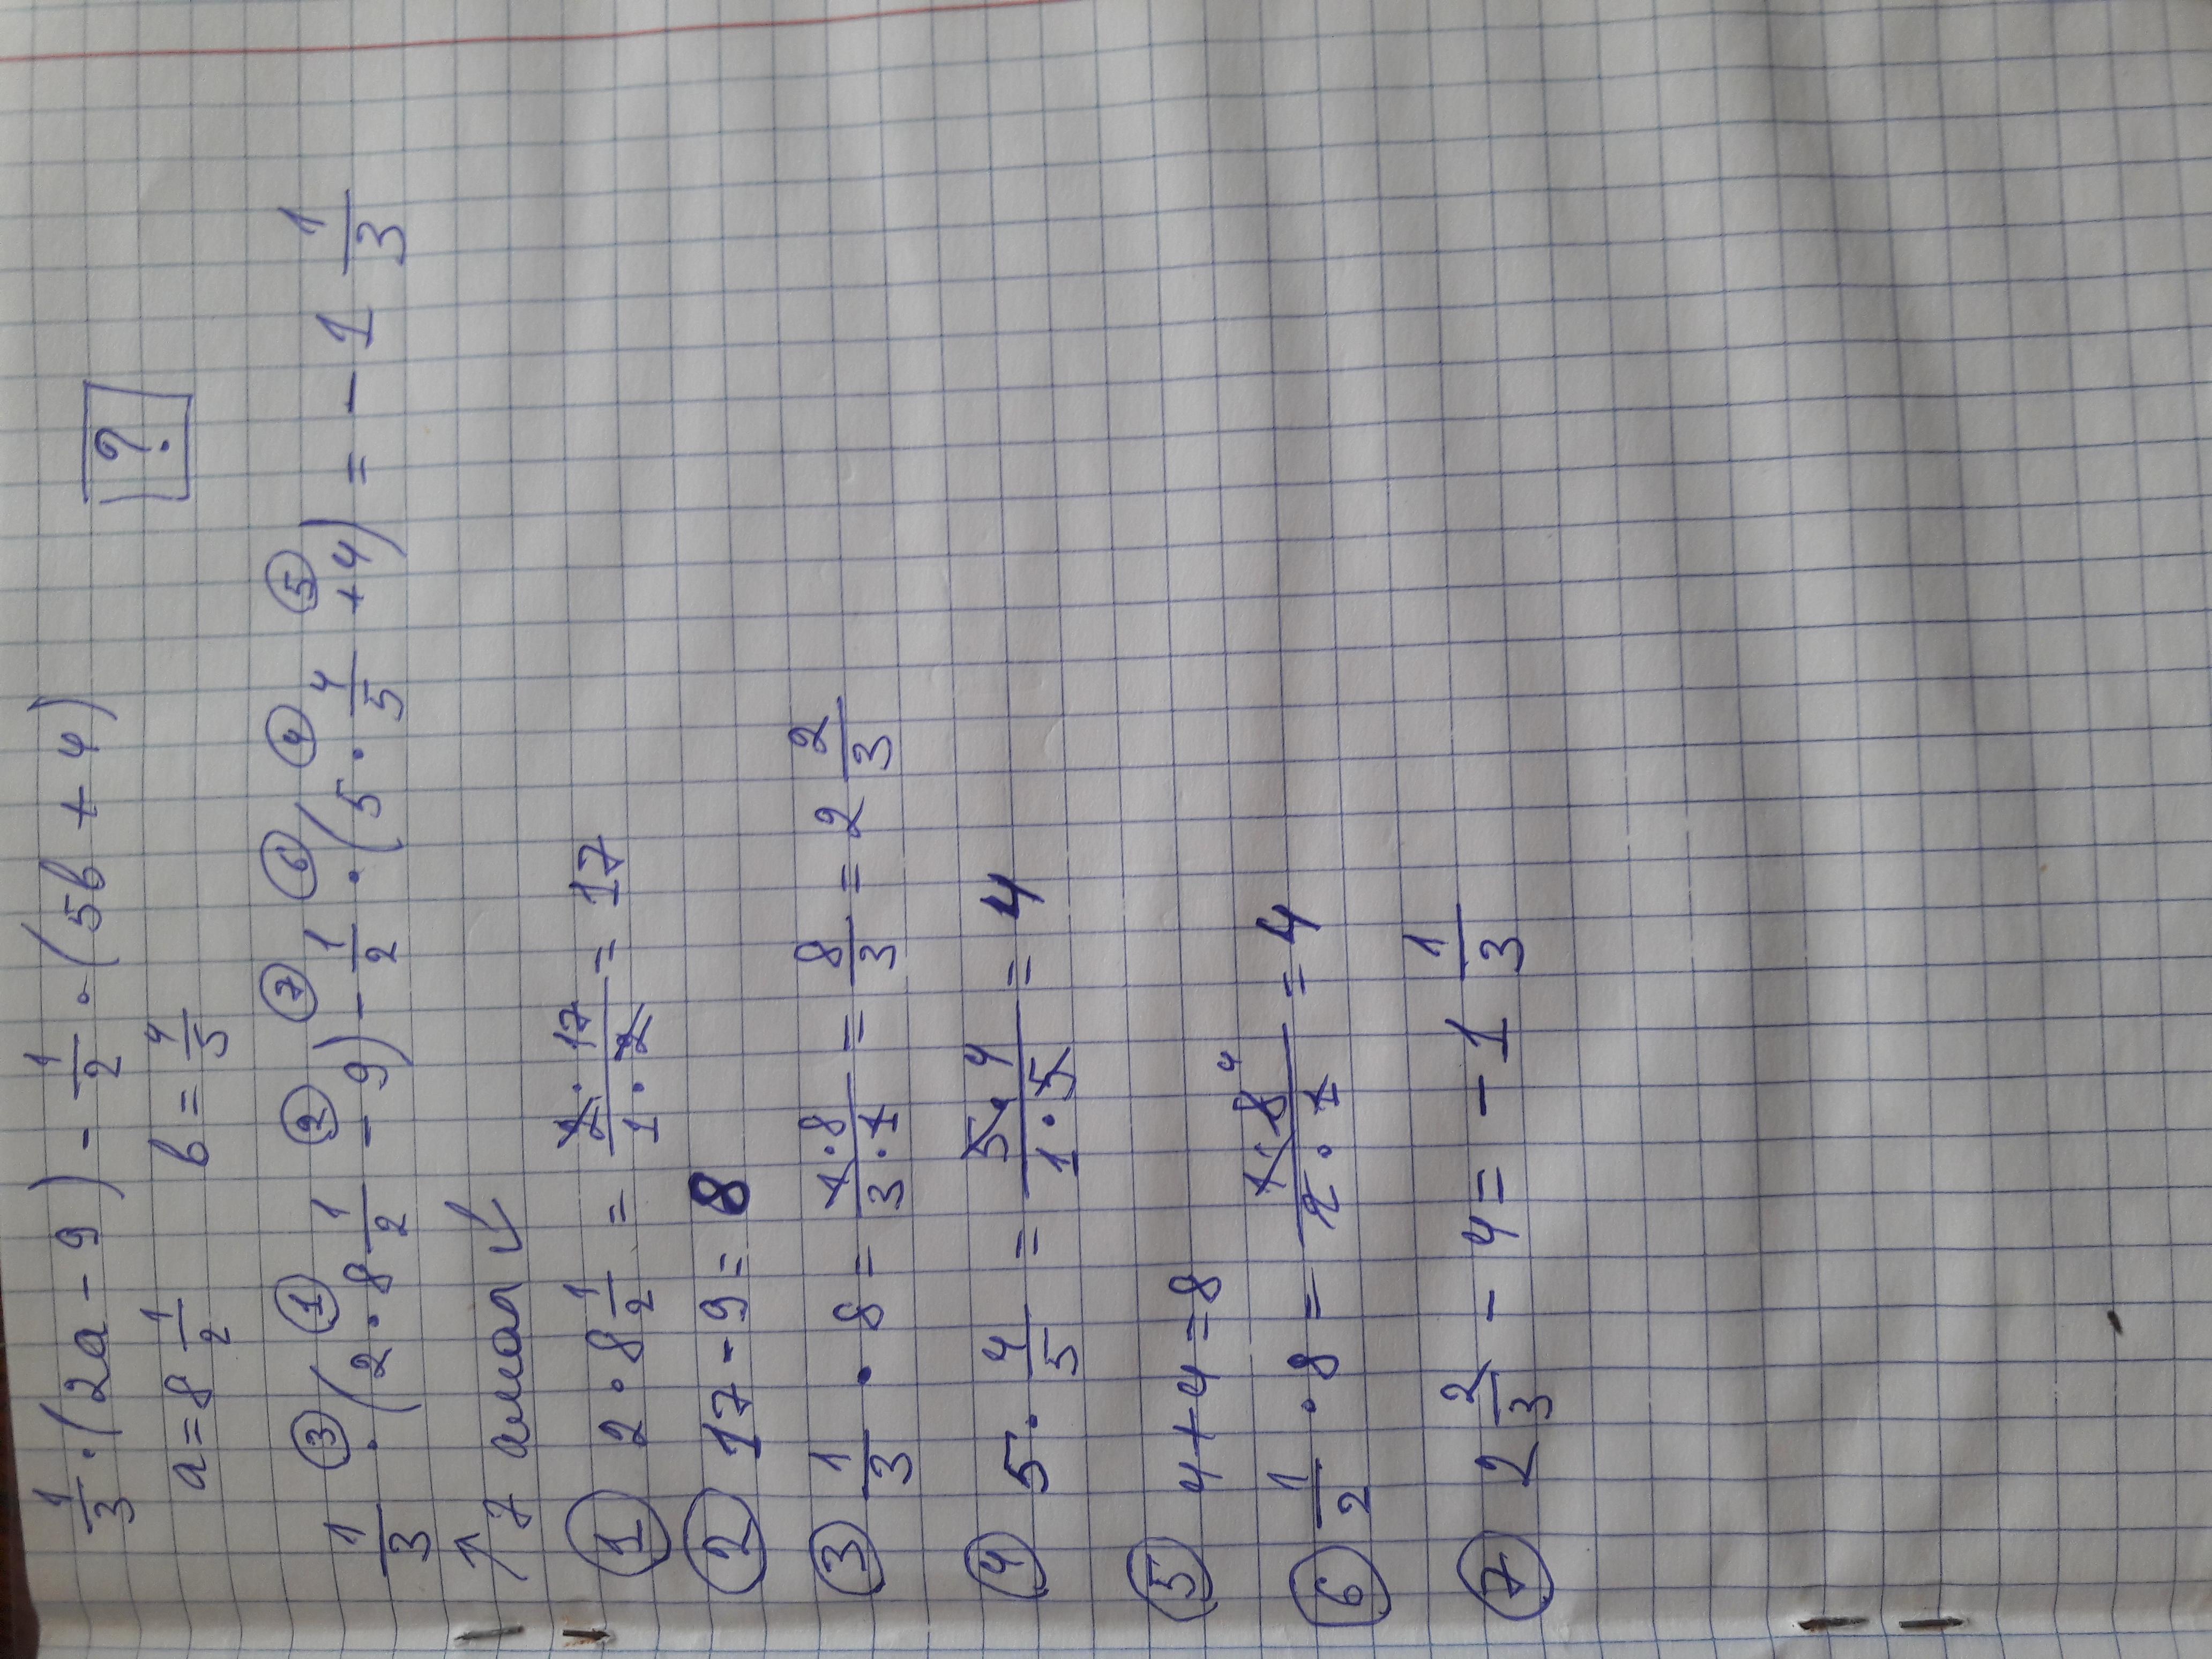 1/3 · (2a - 9) - 1/2 · (5b + 4)
a = 8 1/2 b = 4/5 ?
③ ① ② ⑦ ⑥ ④ ⑤
1/3 · (2 · 8 1/2 - 9) - 1/2 · (5 · 4/5 + 4) = - 1 1/3
↑ 7 амал ↓
① 2 · 8 1/2 = 2 · 17 / 1 · 2 = 17
② 17 - 9 = 8
③ 1/3 · 8 = 1 · 8 / 3 · 1 = 8/3 = 2 2/3
④ 5 · 4/5 = 5 · 4 / 1 · 5 = 4
⑤ 4 + 4 = 8
⑥ 1/2 · 8 = 1 · 8 4 / 2 · 1 = 4
⑦ 2 2/3 - 4 = - 1 1/3